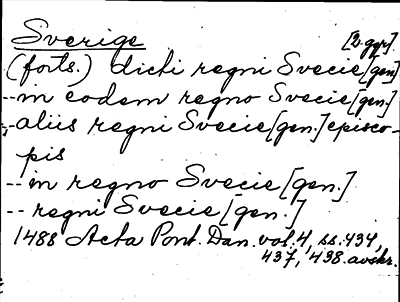 Sverige [2 ggr]
(forts.) dicti regni Svecie [gen]
-- in eodem regno Svecie [gen.]
-- aliis regni Svecie [gen.] episco-
pis
-- in regno Svecie [gen.]
-- regni Svecie [gen.]
1488 Acta Pont. Dan. vol. 4, ss. 434,
437, 438. avskr.